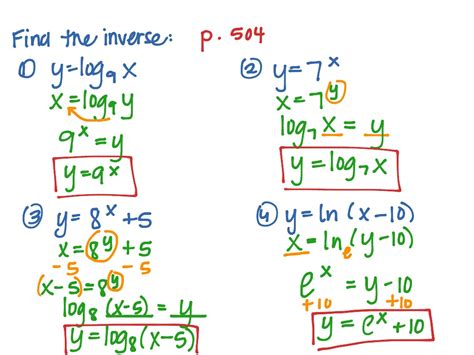 Find the inverse: p. 504
① y=log₉ x
x=log₉ y
9ˣ=y
y=9ˣ
② y=7ˣ
x=7ʸ
log₇ x = y
y=log₇ x
③ y=8ˣ+5
x=8ʸ+5
-5 -5
(x-5)=8ʸ
log₈ (x-5) = y
y=log₈(x-5)
④ y=ln(x-10)
x=lnₑ(y-10)
eˣ = y-10
+10 +10
y = eˣ+10